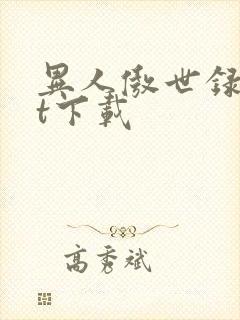 異人傲世録
t下載
高秀斌